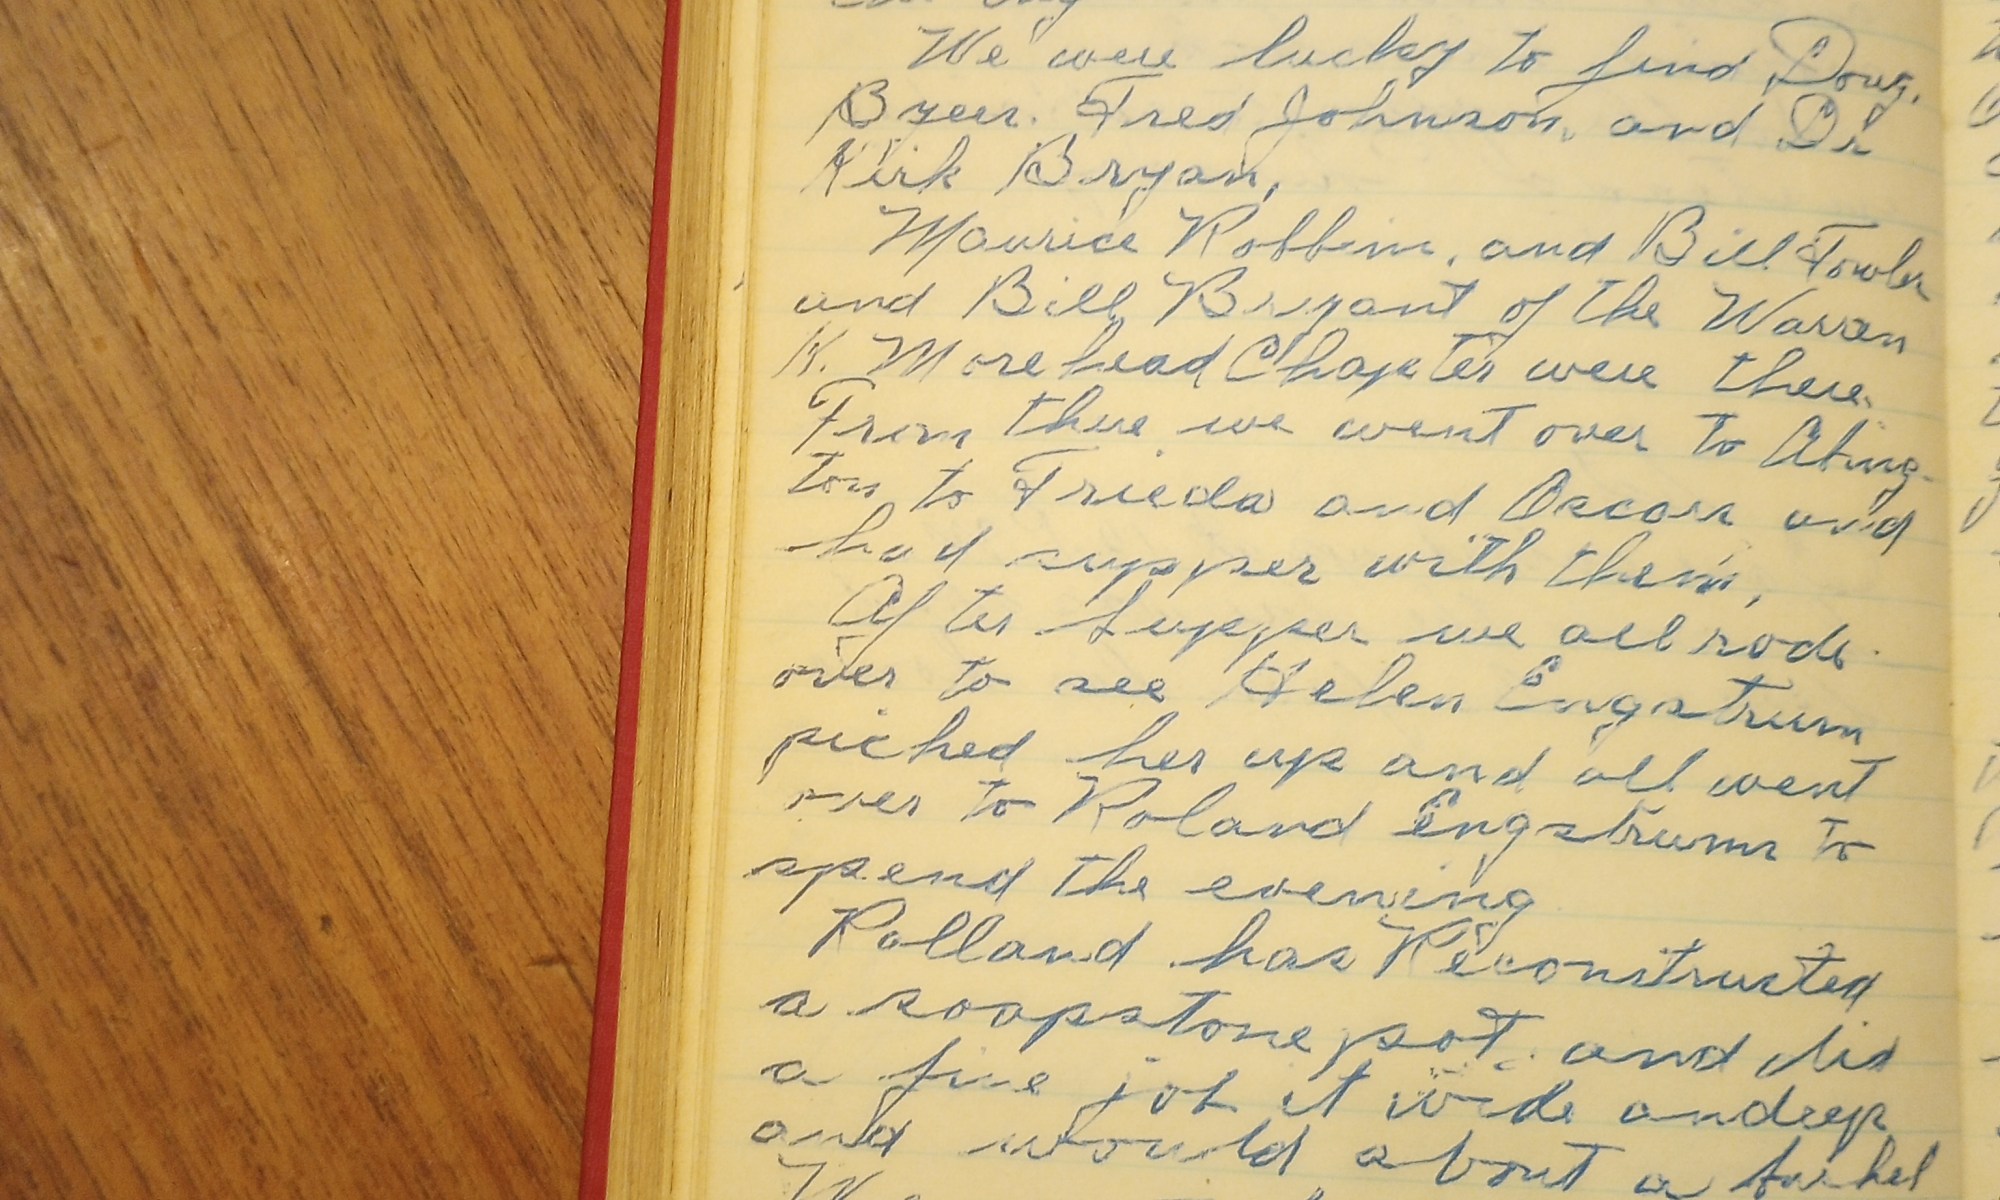 We were lucky to find Doug.
Byers. Fred Johnson, and Dr
Kirk Bryan,
Maurice Robbins, and Bill Fowler
and Bill Bryant of the Warren
K. Morehead Chapter were there.
From there we went over to Abing-
ton to Frieda and Oscar and
had supper with them,
After supper we all rode
over to see Helen Engstrum
picked her up and all went
over to Roland Engstrums to
spend the evening
Rolland has Reconstructed
a soapstone pot. and did
a fine job it wide andeep
and would about a